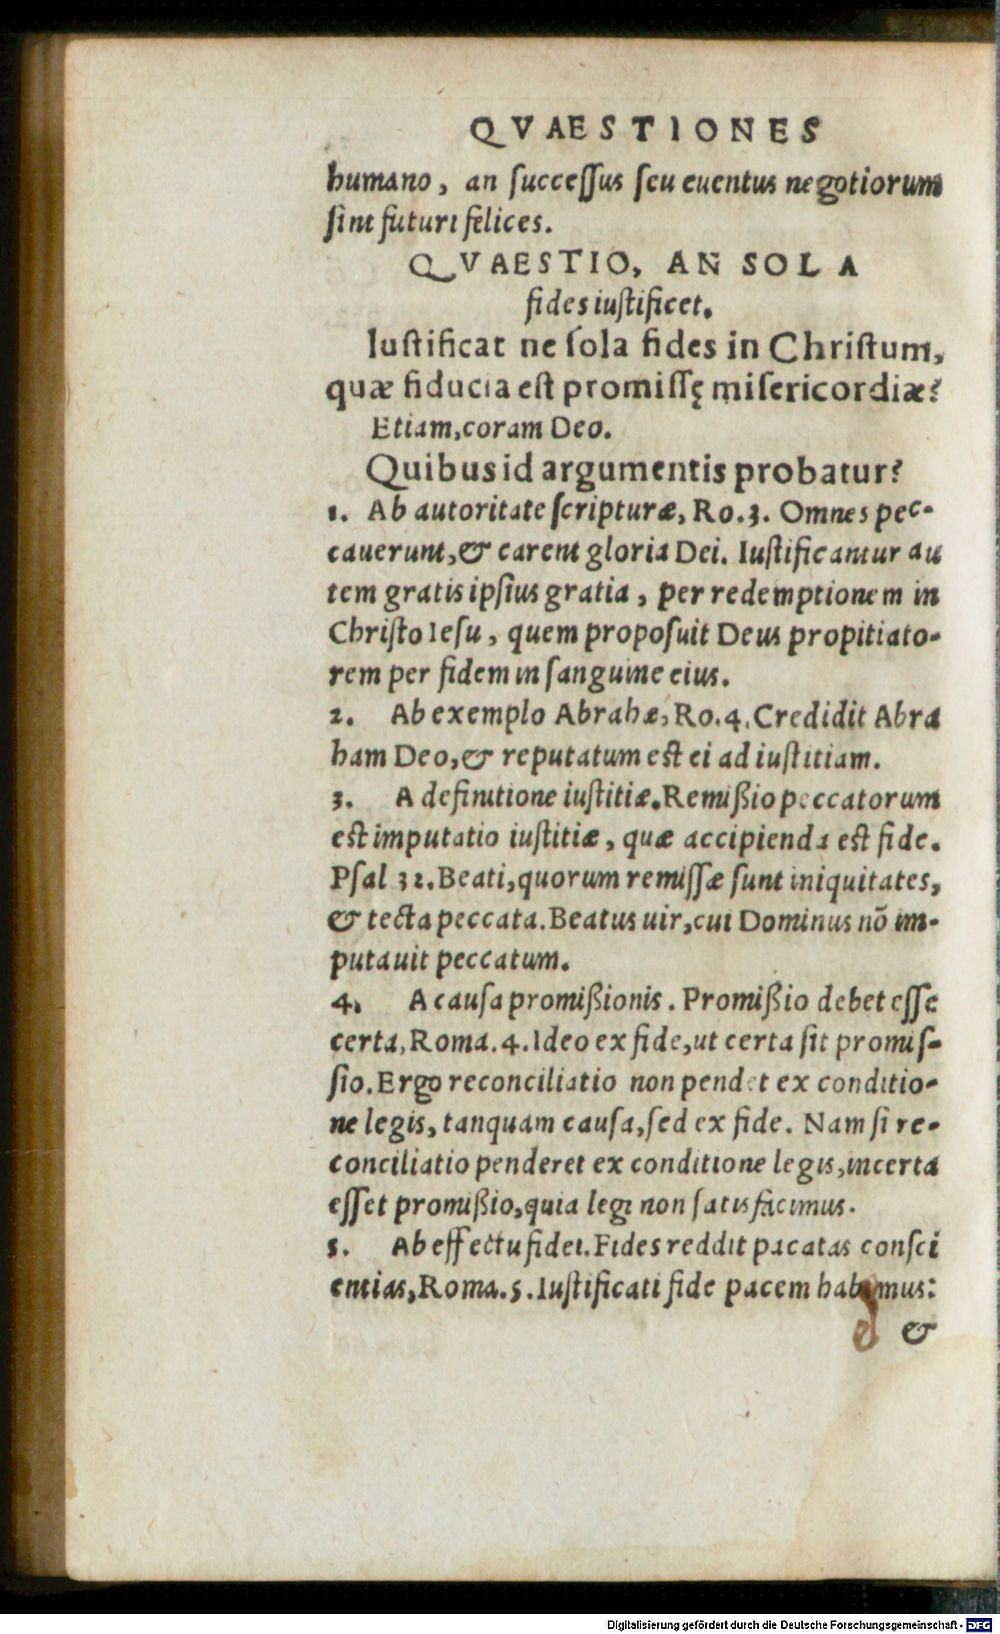 QVAESTIONES
humano, an ſucceſſus ſeu euentus negotiorum
ſint futuri felices.
QVAESTIO, AN SOLA
fides iuſtificet.
Iuſtificat ne ſola fides in Chriſtum,
quæ fiducia eſt promiſſę miſericordiæ?
Etiam, coram Deo.
Quibus id argumentis probatur?
1. Ab autoritate ſcripturæ, Ro. 3. Omnes pec-
cauerunt, & carent gloria Dei. Iuſtificantur au
tem gratis ipſius gratia, per redemptionem in
Chriſto Ieſu, quem propoſuit Deus propitiato-
rem per fidem in ſanguine eius.
2. Ab exemplo Abrahæ, Ro. 4. Credidit Abra
ham Deo, & reputatum eſt ei ad iuſtitiam.
3. A definitione iuſtitiæ. Remißio peccatorum
eſt imputatio iuſtitiæ, quæ accipienda eſt fide.
Pſal 32. Beati, quorum remiſſæ ſunt iniquitates,
& tecta peccata. Beatus uir, cui Dominus nõ im-
putauit peccatum.
4. A cauſa promißionis. Promißio debet eſſe
certa, Roma. 4. Ideo ex fide, ut certa ſit promiſ-
ſio. Ergo reconciliatio non pendet ex conditio-
ne legis, tanquam cauſa, ſed ex fide. Nam ſi re-
conciliatio penderet ex conditione legis, incerta
eſſet promißio, quia legi non ſatisfacimus.
5. Ab effectu fidei. Fides reddit pacatas conſci
entias, Roma. 5. Iuſtificati fide pacem habemus:
&
Digitalisierung gefördert durch die Deutsche Forschungsgemeinschaft - DFG